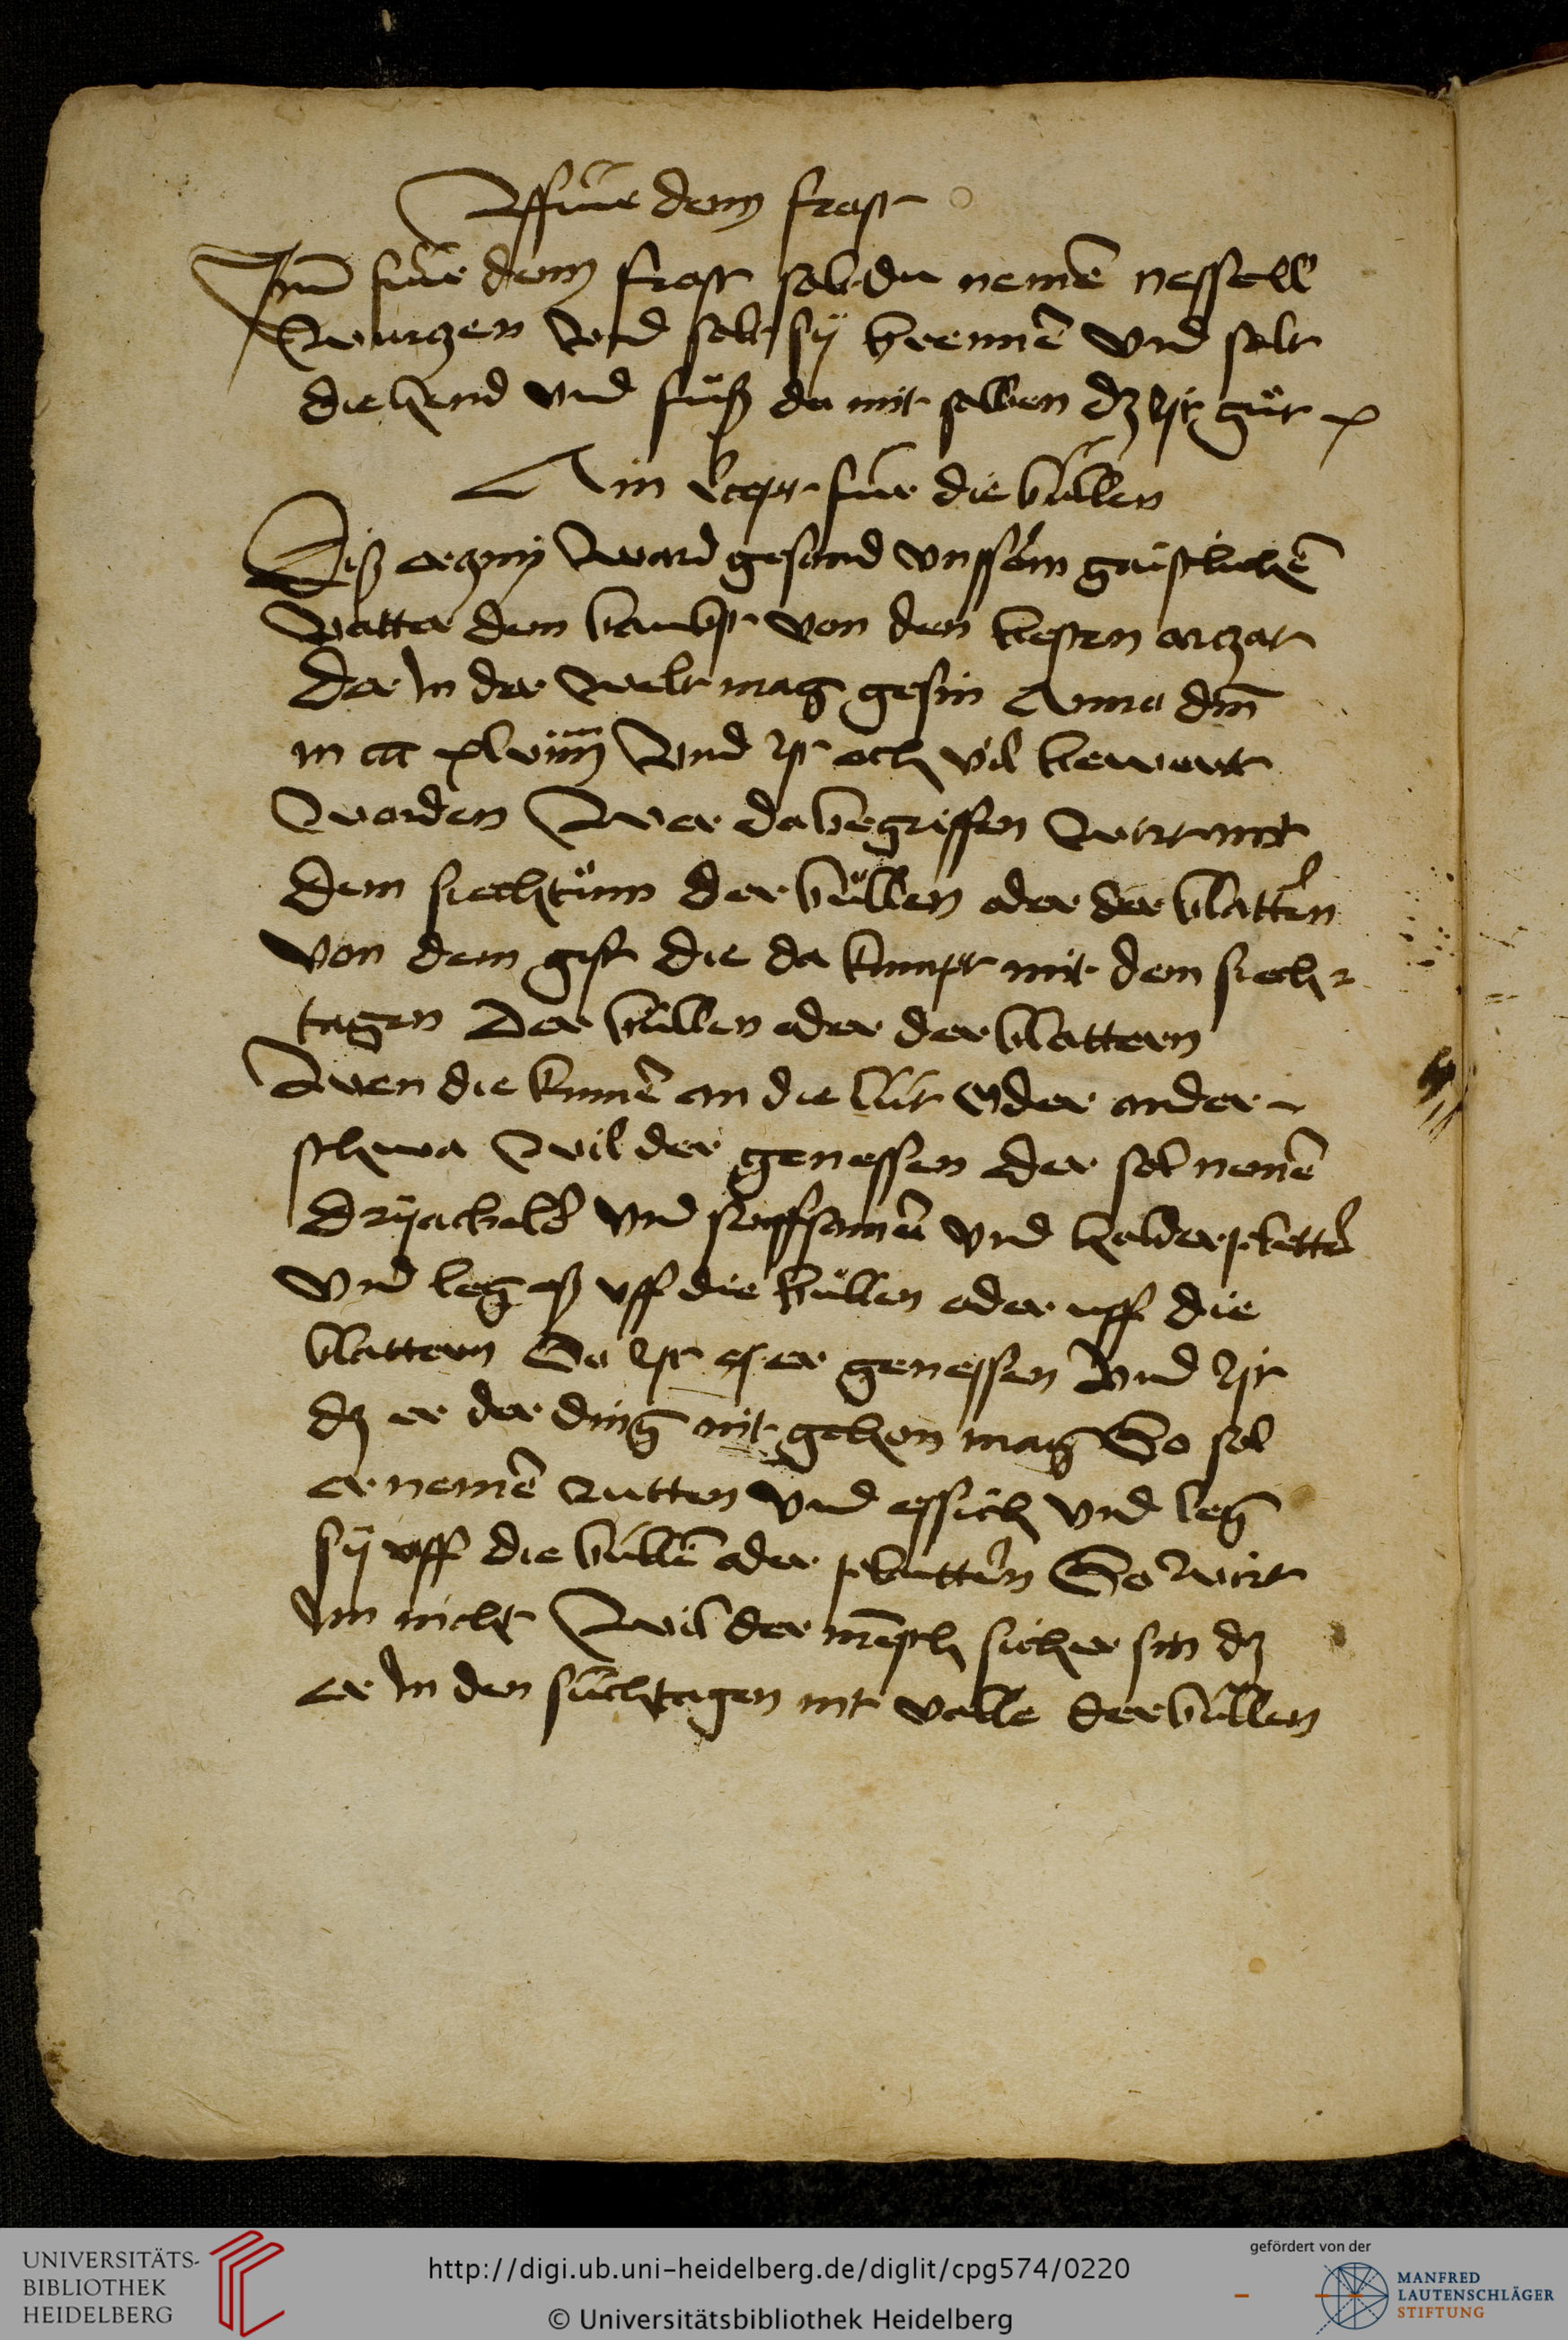 Fur den frost
Jtem fur den frost solt du nemē nessell
wurtzen vnd solt sÿ brennē vnd solt
die hend vnd füß da mit salben dz ist gůt
Ain recept fur die büllen
Diß ertzny ward gesand vnsserm gaistlichē
vatter dem baubst von den besten artzat
Der in der welt mag gesin Anno dm̄
vnd ist och vil bewert
worden Wer da begriffen wirt mit
dem siechtům der büllen oder der blattern
von dem gift die da kumpt mit dem siech
tagen Der büllen oder der blattern
Wen die kumē an die lüt oder ander
schwa wil der genessen der sol nemē
Drÿackels vnd senffsamē vnd holder bletter
vnd leg eß vff die büllen oder uff die
blattern So ist er genessen Vnd ist
dz er der ding nit gehon mag So sol
er nemē rutten vnd essich vnd leg
sÿ vff die büllē oder blattern So wirt
im nicht Wil der mēsch sicher sin dz
er in den siechtagen nit valle der büllen
UNIVERSITÄTS-
BIBLIOTHEK
HEIDELBERG
http://digi.ub.uni-heidelberg.de/diglit/cpg574/0220
© Universitätsbibliothek Heidelberg
gefördert von der
MANFRED
LAUTENSCHLÄGER
STIFTUNG